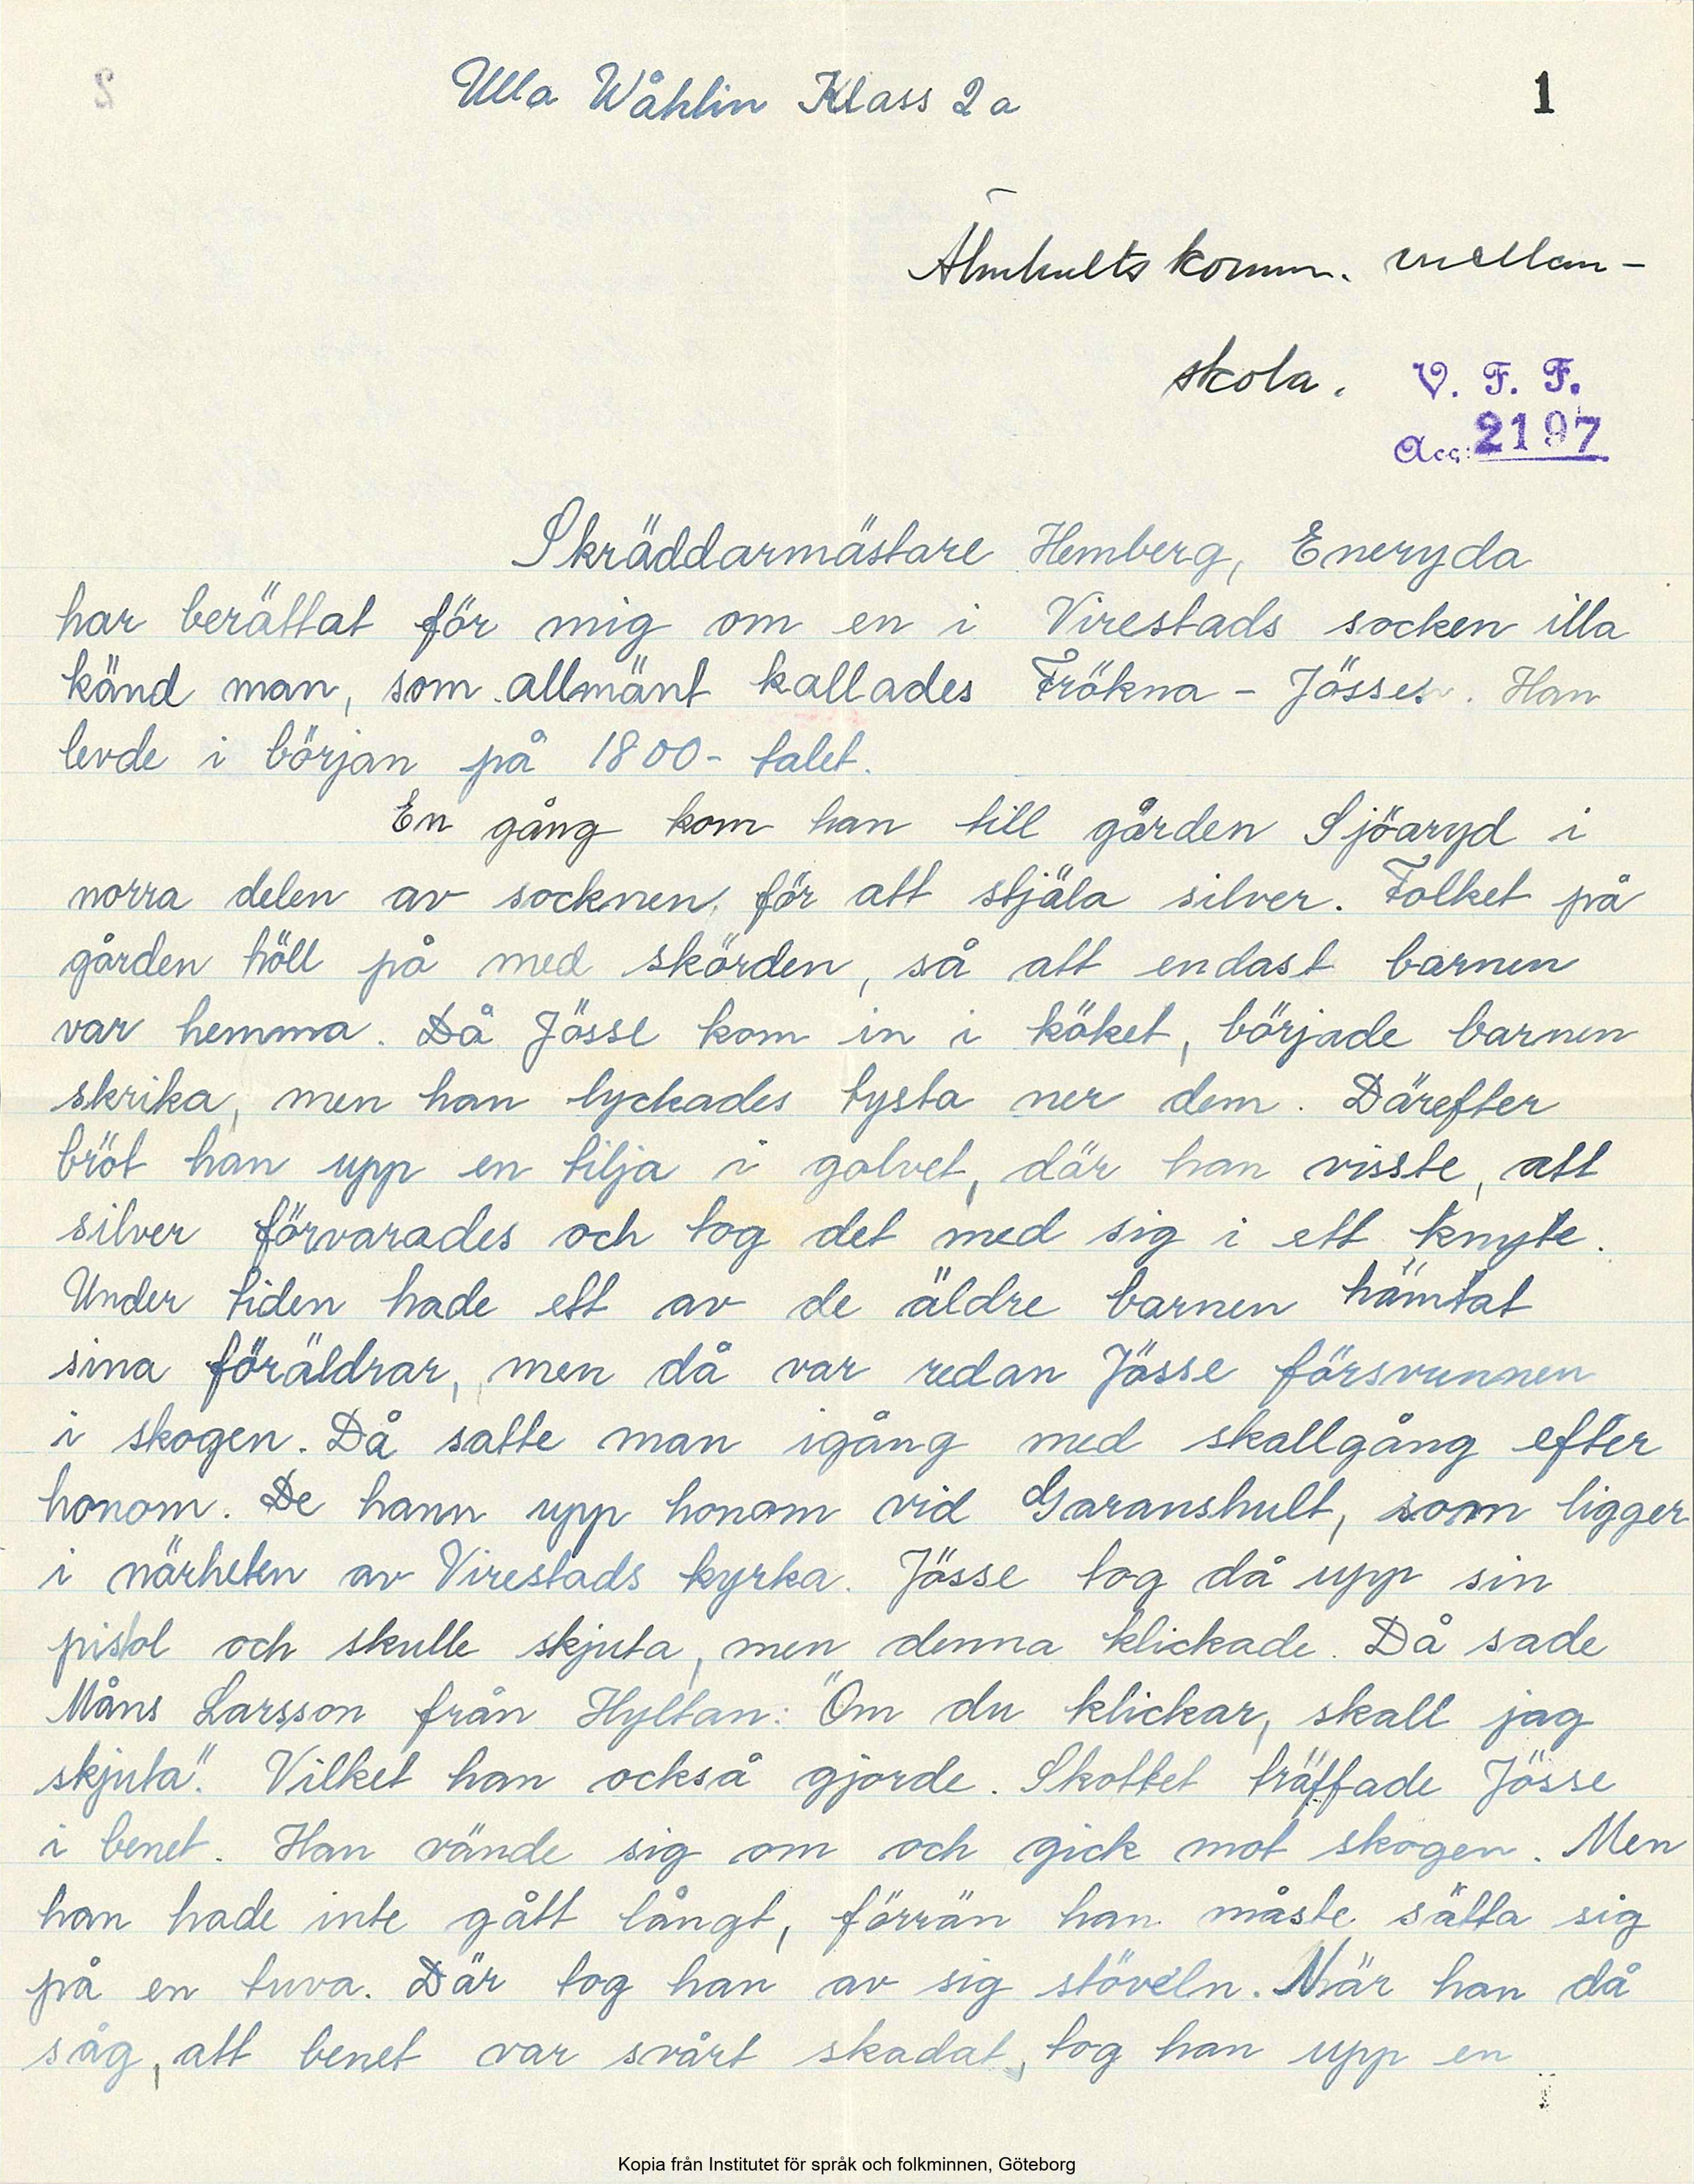 Ulla Wåhlin Klass 2a
1
Älmhults komm. mellan-
skola.
V. F. F.
Acc: 2197
Skräddarmästare Hemberg, Eneryda
har berättat för mig om en i Virestads socken illa
känd man, som allmänt kallades Frökna - Jösse. Han
levde i början på 1800- talet.
En gång kom han till gården Sjöaryd i
norra delen av socknen, för att stjäla silver. Folket på
gården höll på med skörden, så att endast barnen
var hemma. Då Jösse kom in i köket, började barnen
skrika, men han lyckades tysta ner dem. Därefter
bröt han upp en tilja i golvet, där han visste, att
silver förvarades och tog det med sig i ett knyte.
Under tiden hade ett av de äldre barnen hämtat
sina föräldrar, men då var redan Jösse försvunnen
i skogen. Då satte man igång med skallgång efter
honom. De hann upp honom vid Garanshult, som ligger
i närheten av Virestads kyrka. Jösse tog då upp sin
pistol och skulle skjuta, men denna klickade. Då sade
Måns Larsson från Hyltan: "Om du klickar, skall jag
skjuta". Vilket han också gjorde. Skottet träffade Jösse
i benet. Han vände sig om och gick mot skogen. Men
han hade inte gått långt, förrän han måste sätta sig
på en tuva. Där tog han av sig stöveln. När han då
såg, att benet var svårt skadat, tog han upp en
Kopia från Institutet för språk och folkminnen, Göteborg